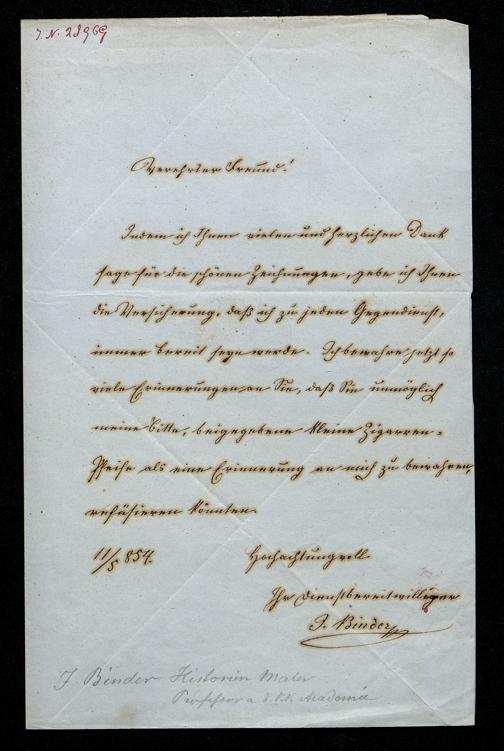 I. N. 28969
Verehrter Freund!
Indem ich Ihnen vielen und herzlichen Dank
sage für die schönen Zeichnungen, gebe ich Ihnen
die Versicherung, daß ich zu jeden Gegendienst,
immer bereit seyn werde. Ich bewahre jetzt so
viele Erinnerungen an Sie, daß Sie unmöglich
meine Bitte, beigegebene kleine Zigarren-
Pfeife als eine Erinnerung an mich zu bewahren,
refüsieren könnten
11/5 854.
Hochachtungvoll
Ihr dienstbereitwilliger
J. Binder
J Binder Historien Maler
Professor a. d. k.k. Academie